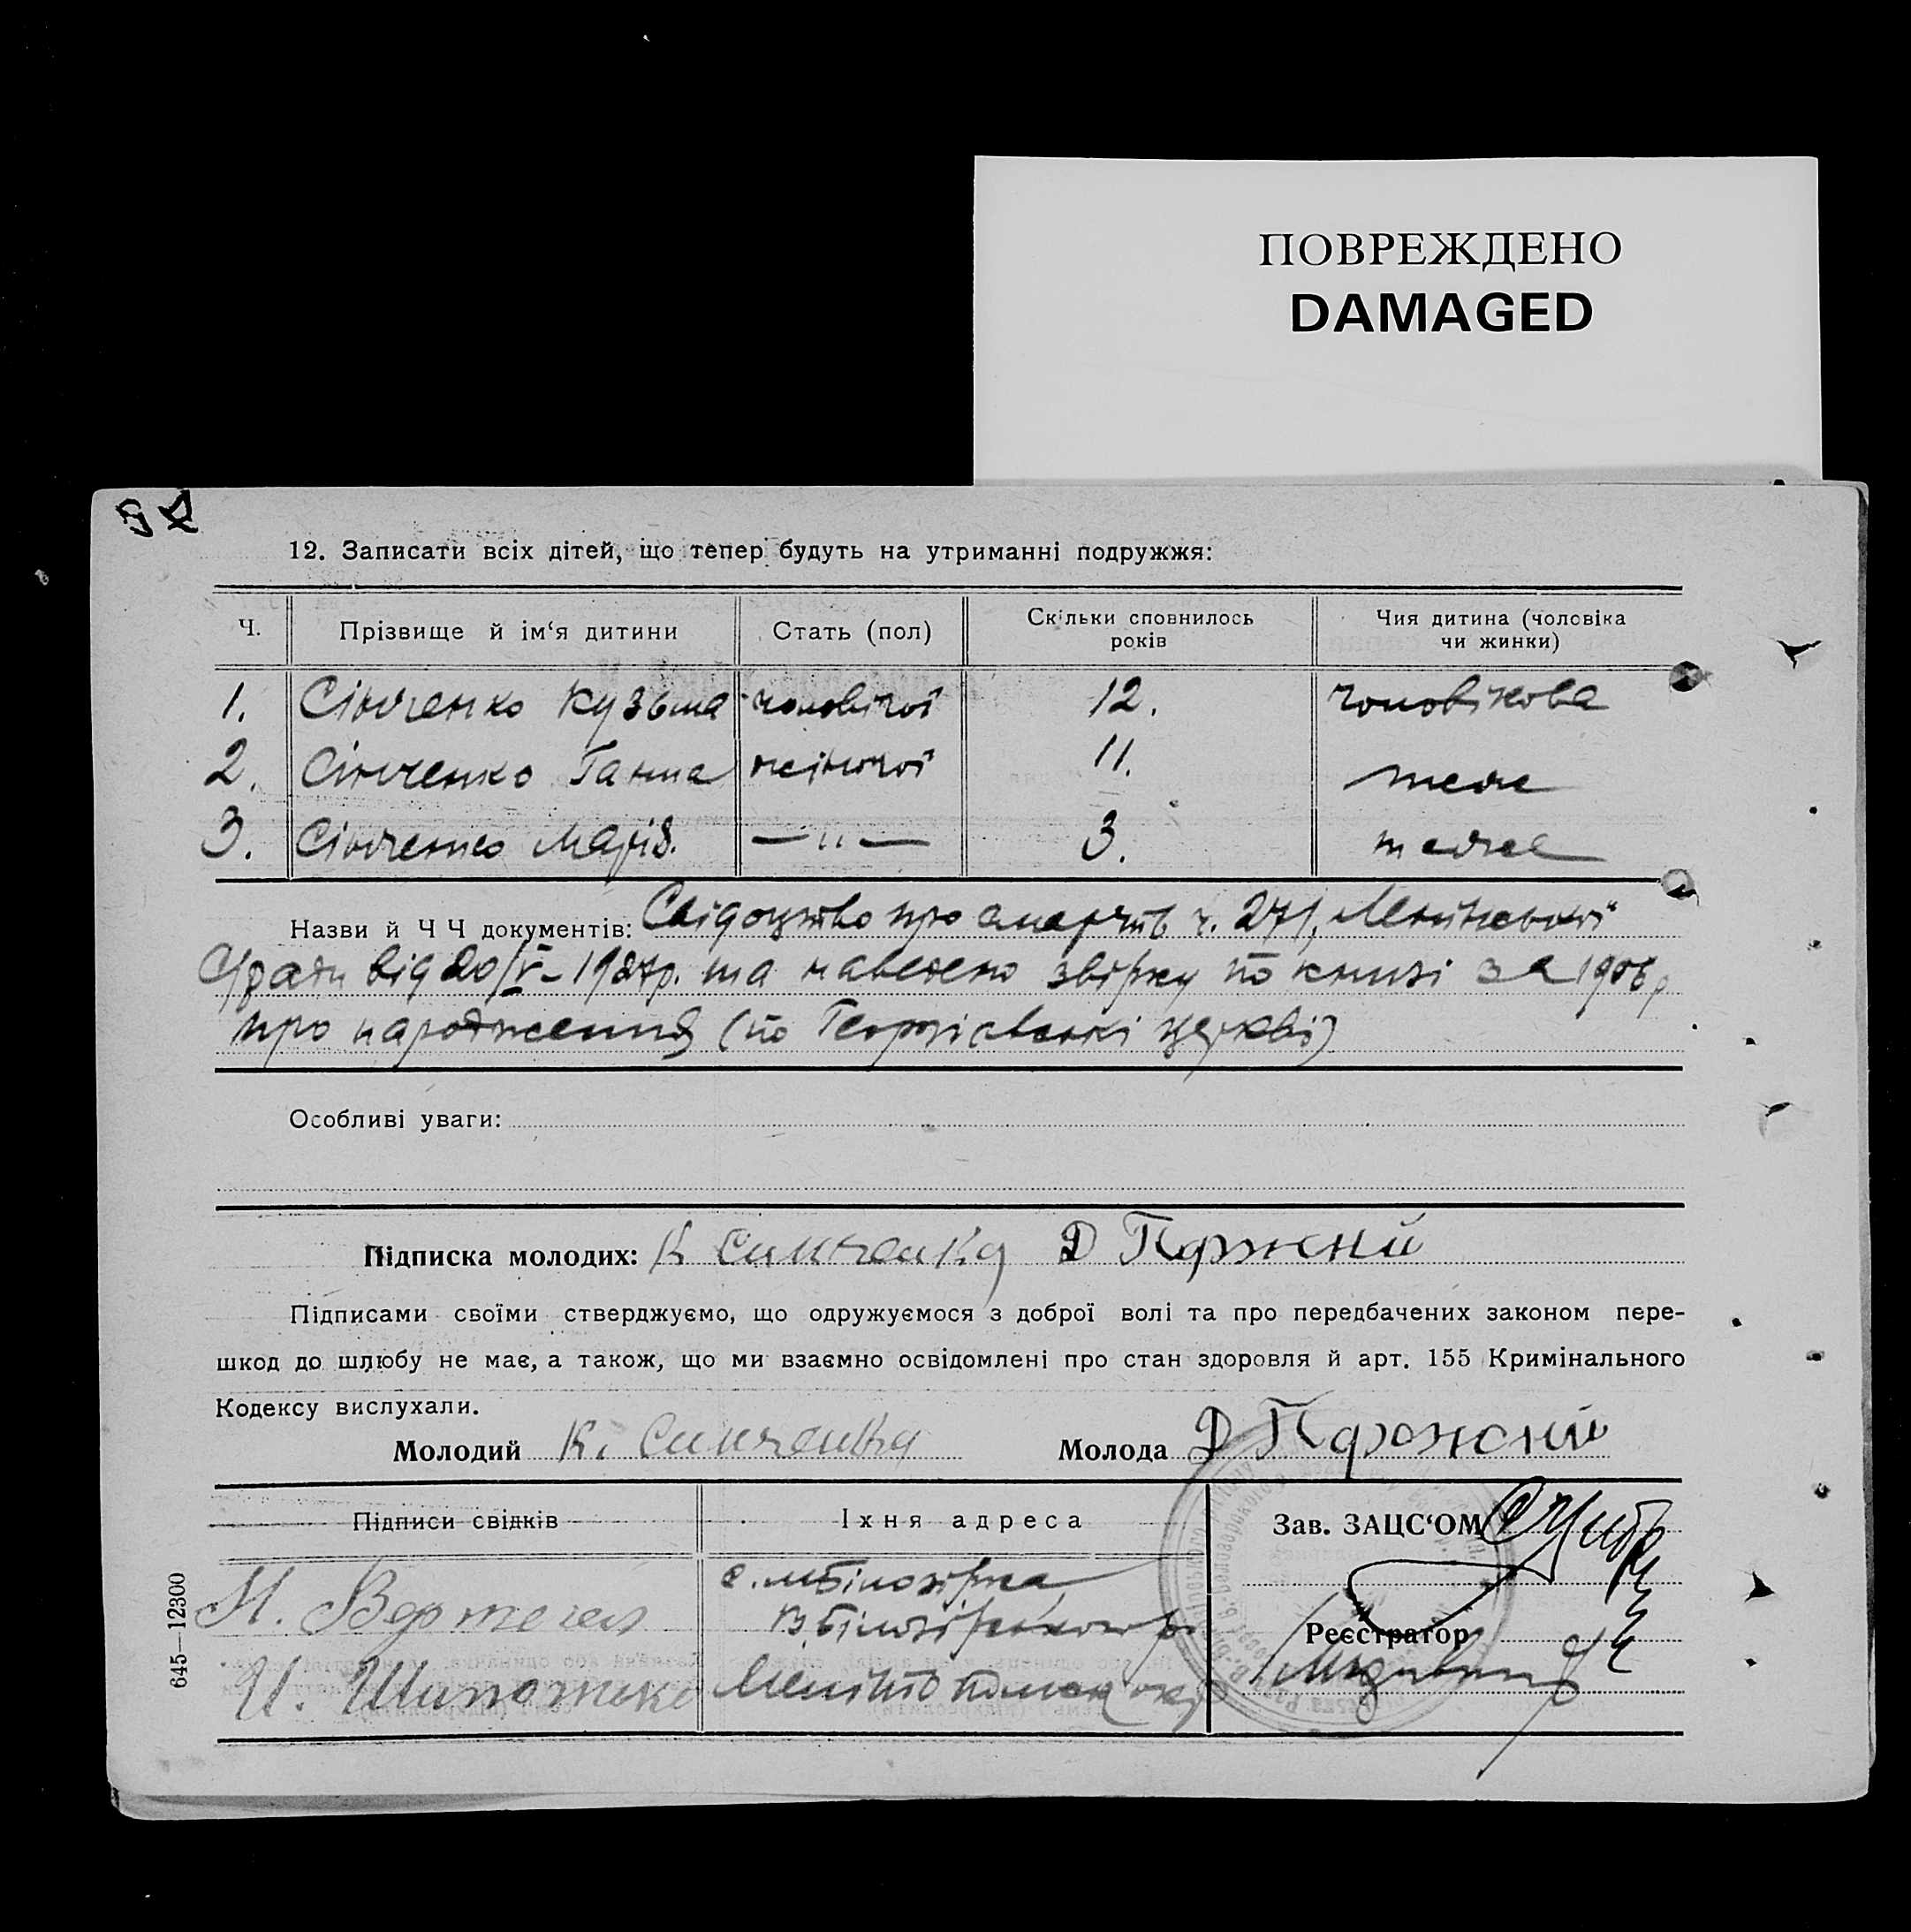 ПОВРЕЖДЕНО
DAMAGED
12. Записати всіх дітей, що тепер будуть на утриманні подружжя:
Ч. Прізвище й ім‘я дитини Стать (пол) Скільки сповнилось років Чия дитина (чоловіка чи жинки)
1. Сінченко Кузьма чоловічої 12. чоловікова
2. Сінченко Ганна жіночої 11. теж
3. Сінченко Марія. — " — 3. теж
Назви й Ч Ч документів: Свідоцтво про смерть ч. 271,
С/ради від 20/V - 1927р. та наведено звірку по книзі за 1906р
про народження (по Георгіевські церкві)
Особливі уваги:
Підписка молодих: К Синченко Д
Підписами своїми стверджуємо, що одружуємося з доброї волі та про передбачених законом пере-
шкод до шлюбу не має, а також, що ми взаємно освідомлені про стан здоровля й арт. 155 Кримінального
Кодексу вислухали.
Молодий К. Синченко Молода Д
Підписи свідків Їхня адреса Зав. ЗАЦС‘ОМ
с. мБілозірка
В.Білозірського р.
Реєстратор
И. Мелітопол окр
645—12300